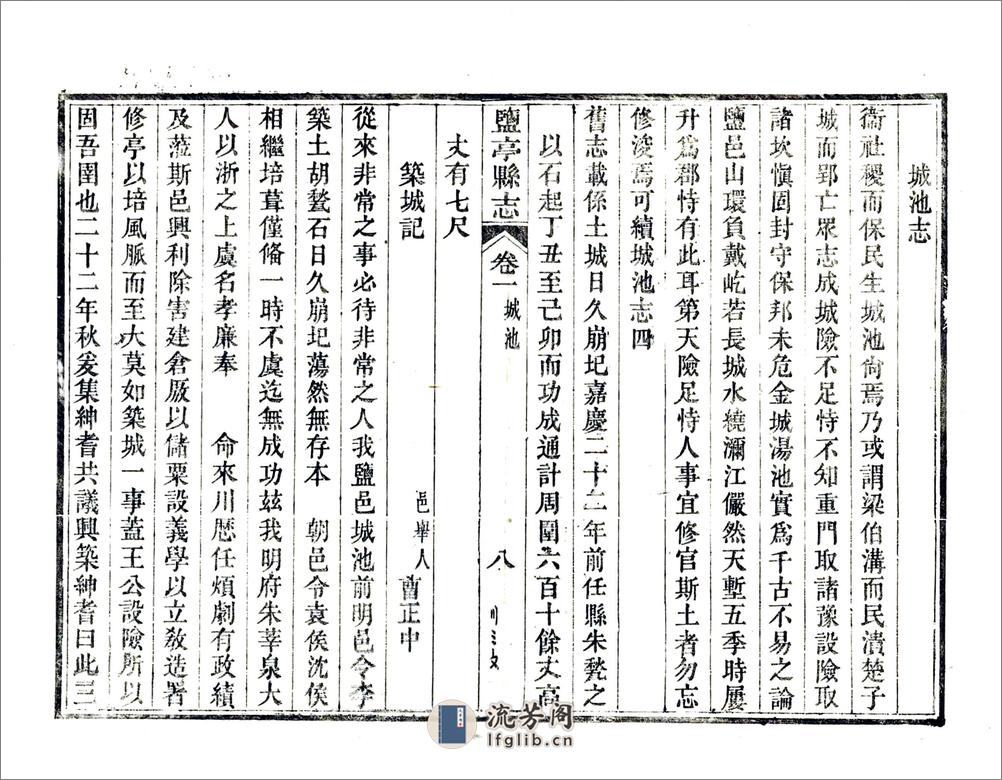 城池志
衞社稷而保民生城池尙焉乃或謂梁伯溝而民潰楚子
城而郢亡眾志成城險不足恃不知重門取諸豫設險取
諸坎愼固封守保邦未危金城湯池實爲千古不易之論
鹽邑山環負戴屹若長城水繞瀰江儼然天塹五季時屢
升爲郡恃有此耳第天險足恃人事宜修官斯土者勿忘
修浚焉可續城池志四
舊志載係土城日久崩圯嘉慶二十二年前任縣朱甃之
以石起丁丑至己卯而功成通計周圍六百十餘丈高
鹽亭縣志 卷一 城池 八
丈有七尺
築城記 邑舉人 曺正中
從來非常之事必待非常之人我鹽邑城池前明邑令李
築土胡甃石日久崩圯蕩然無存本 朝邑令袁侯沈侯
相繼培葺僅備一時不虞迄無成功玆我明府朱莘泉大
人以浙之上虞名孝廉奉 命來川歷任煩劇有政績
及蒞斯邑興利除害建倉厫以儲粟設義學以立敎造著
修亭以培風脈而至大莫如築城一事蓋王公設險所以
固吾圉也二十二年秋爰集紳耆共議興築紳耆曰此三
流芳阁
lfglib.cn